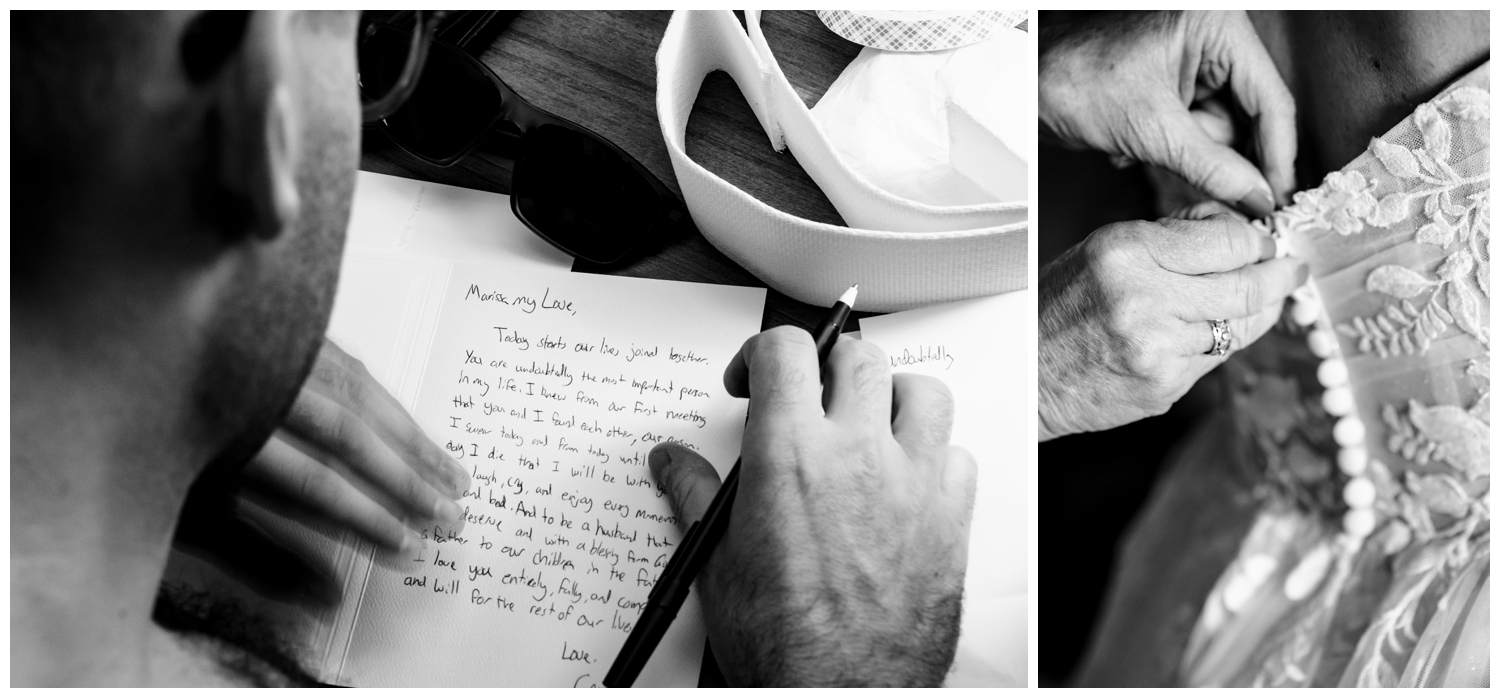 Marissa my Love,
Today starts our lives joined together.
You are undoubtedly the most important person
in my life. I knew from our first meeting
that you and I found each other, our person.
I swear today and from today until
day I die that I will be with
laugh, cry, and enjoy every moment
and bad. And to be a husband that
deserve and with a blessing from
a father to our children in the
I love you entirely, fully, and
and will for the rest of our lives
Love,
undoubtably